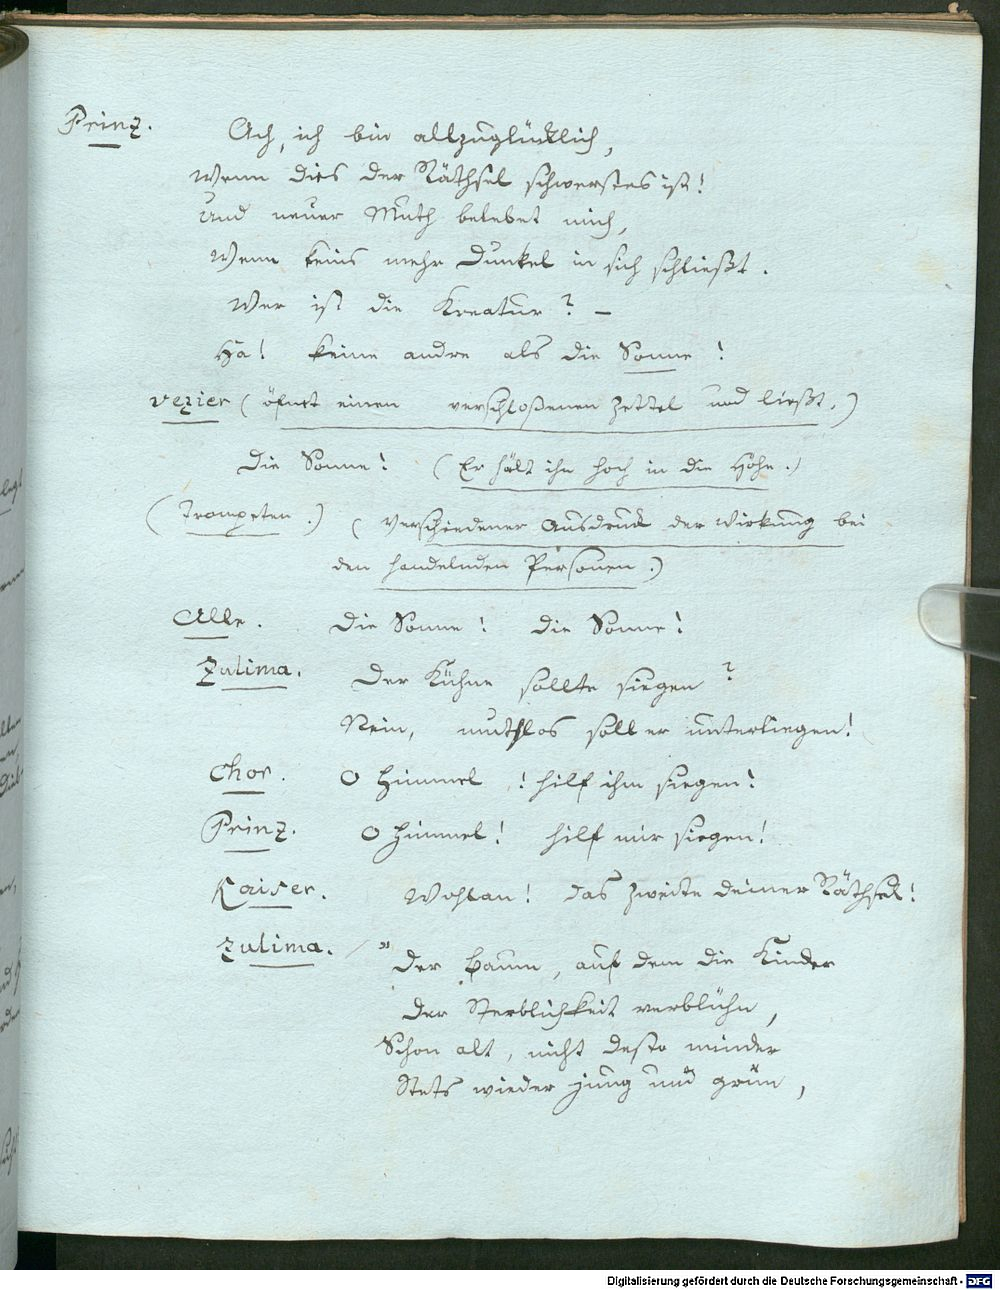 Prinz. Ach, ich bin allzuglücklich,
Wenn dies der Räthsel schwerstes ist!
Und neuer Muth belebet mich,
Wenn keins mehr Dunkel in sich schließt.
Wer ist die Kreatur? –
Ha! keine andre als die Sonne!
Vezier (öfnet einen verschloßenen Zettel und ließt.)
Die Sonne! (Er hält ihn hoch in die Höhe.)
(Trompeten.) (Verschiedener Ausdruck der Wirkung bei
den handelnden Personen.)
Alle. Die Sonne! Die Sonne!
Zulima. Der Kühne sollte siegen?
Nein, muthlos soll er unterliegen!
Chor. O Himmel! hilf ihm siegen!
Prinz. O Himmel! hilf mir siegen!
Kaiser. Wohlan! das zweite deiner Räthsel!
Zulima. "Der Baum, auf dem die Kinder
Der Sterblichkeit verblühn,
Schon alt, nicht desto minder
Stets wieder jung und grün,
Digitalisierung gefördert durch die Deutsche Forschungsgemeinschaft - DFG